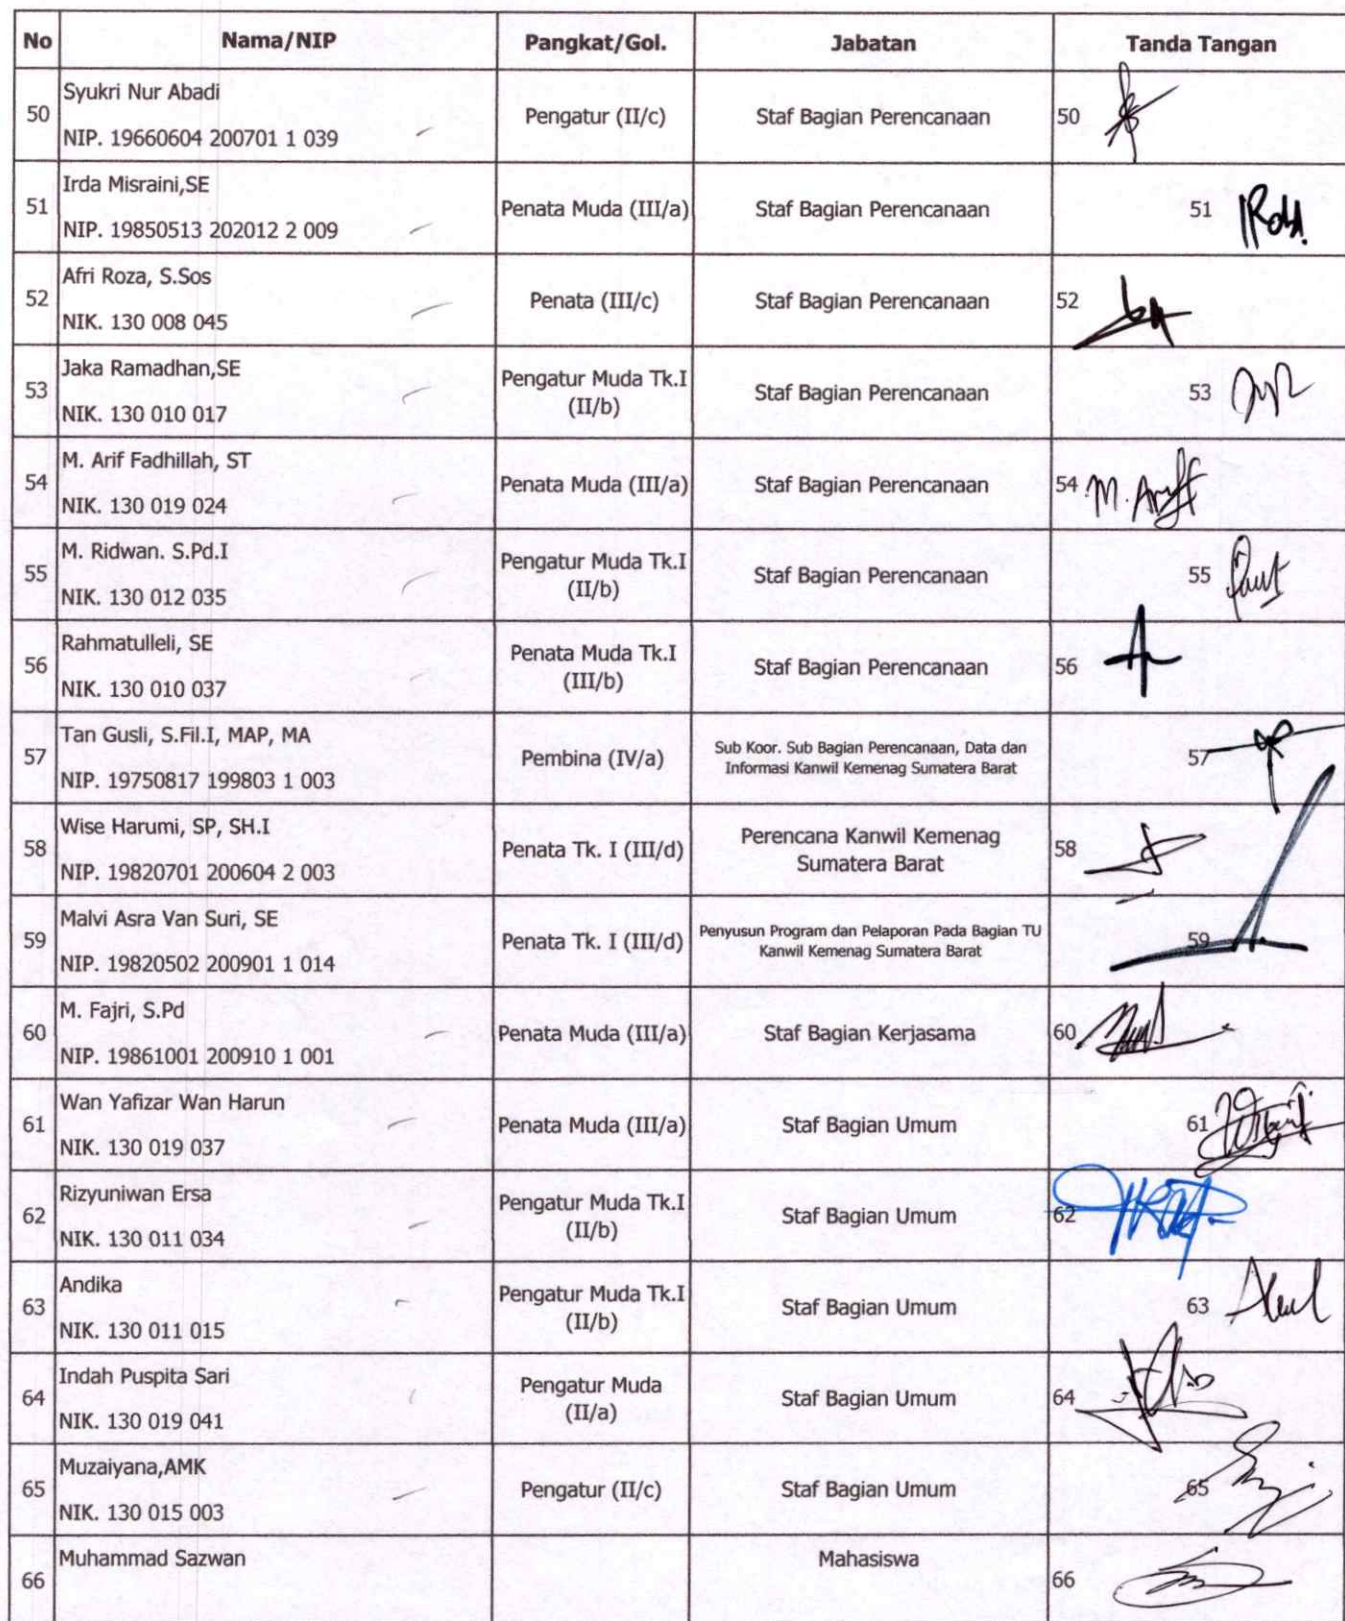 No Nama/NIP Pangkat/Gol. Jabatan Tanda Tangan
50 Syukri Nur Abadi
NIP. 19660604 200701 1 039 Pengatur (II/c) Staf Bagian Perencanaan 50
51 Irda Misraini,SE
NIP. 19850513 202012 2 009 Penata Muda (III/a) Staf Bagian Perencanaan 51
52 Afri Roza, S.Sos
NIK. 130 008 045 Penata (III/c) Staf Bagian Perencanaan 52
53 Jaka Ramadhan,SE
NIK. 130 010 017 Pengatur Muda Tk.I
(II/b) Staf Bagian Perencanaan 53
54 M. Arif Fadhillah, ST
NIK. 130 019 024 Penata Muda (III/a) Staf Bagian Perencanaan 54
55 M. Ridwan. S.Pd.I
NIK. 130 012 035 Pengatur Muda Tk.I
(II/b) Staf Bagian Perencanaan 55
56 Rahmatulleli, SE
NIK. 130 010 037 Penata Muda Tk.I
(III/b) Staf Bagian Perencanaan 56
57 Tan Gusli, S.Fil.I, MAP, MA
NIP. 19750817 199803 1 003 Pembina (IV/a) Sub Koor. Sub Bagian Perencanaan, Data dan
Informasi Kanwil Kemenag Sumatera Barat 57
58 Wise Harumi, SP, SH.I
NIP. 19820701 200604 2 003 Penata Tk. I (III/d) Perencana Kanwil Kemenag
Sumatera Barat 58
59 Malvi Asra Van Suri, SE
NIP. 19820502 200901 1 014 Penata Tk. I (III/d) Penyusun Program dan Pelaporan Pada Bagian TU
Kanwil Kemenag Sumatera Barat 59
60 M. Fajri, S.Pd
NIP. 19861001 200910 1 001 Penata Muda (III/a) Staf Bagian Kerjasama 60
61 Wan Yafizar Wan Harun
NIK. 130 019 037 Penata Muda (III/a) Staf Bagian Umum 61
62 Rizyuniwan Ersa
NIK. 130 011 034 Pengatur Muda Tk.I
(II/b) Staf Bagian Umum 62
63 Andika
NIK. 130 011 015 Pengatur Muda Tk.I
(II/b) Staf Bagian Umum 63
64 Indah Puspita Sari
NIK. 130 019 041 Pengatur Muda
(II/a) Staf Bagian Umum 64
65 Muzaiyana,AMK
NIK. 130 015 003 Pengatur (II/c) Staf Bagian Umum 65
66 Muhammad Sazwan Mahasiswa 66